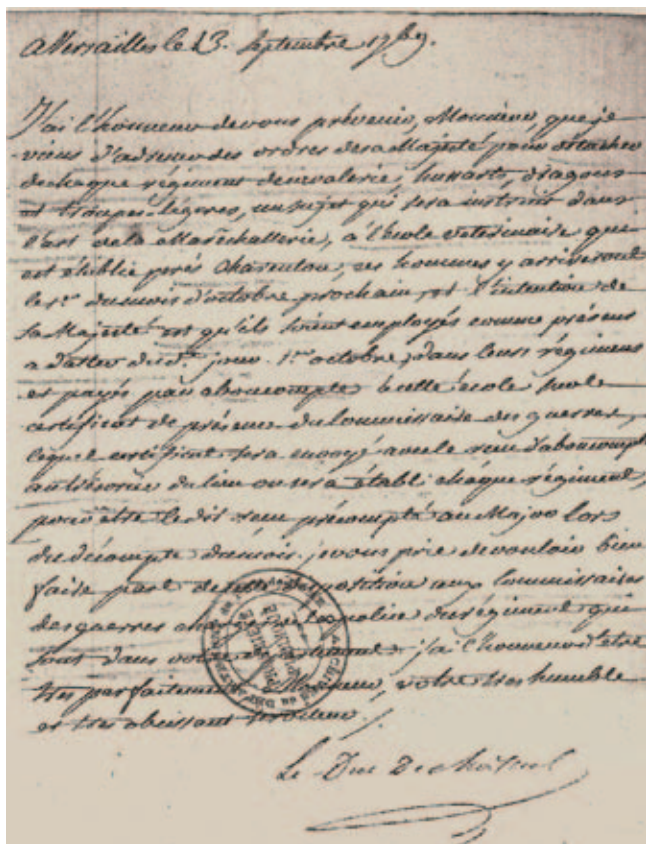 a Versailles le 13. Septembre 1769.
J'ai l'honneur de vous prévenir, Monsieur, que je
viens d'adresser des ordres de sa Majesté pour détacher
de chaque régiment de cavalerie, hussarts, dragons
et troupes légeres, un sujet qui sera instruit dans
l'art de la Maréchallerie, à l'école veterinaire qui
est établie prés Charenton, ces hommes y arriveront
le 1er. du mois d'octobre prochain, et l'intention de
sa Majesté est qu'ils soient employés comme présens
a datter du d. jour 1er octobre, dans leurs régimens
et payés par aboncompte à cette école sur le
certificat de présence du Commissaire des guerres,
lequel certificat sera envoyé avec le recu d'aboncompt
au trésorier du lieu ou sera établi chaque régiment,
pour être le dit recu précompté au Major lors
du décompte du mois. je vous prie de vouloir bien
faire part de cette disposition aux Commissaires
des guerres de la police du régiment qui
sont dans votre j'ai l'honneur d'être
tres parfaitement, Monsieur, votre tres humble
et tres obeissant serviteur /.
Le Duc De choiseul